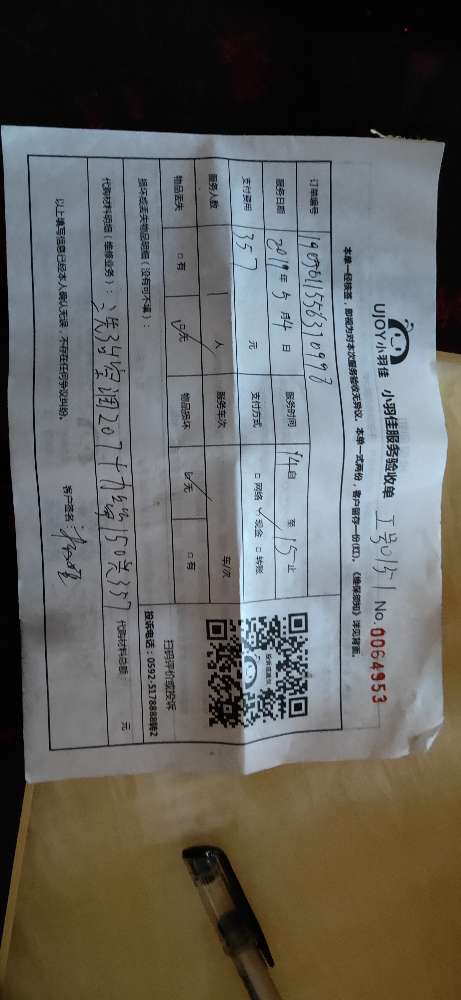 UJOY小羽佳 小羽佳服务验收单 工号015-1 No.0064953
本单一经核签，即视为对本次服务验收无异议，本单一式两份，客户留存一份(红)，《维保须知》详见背面。
订单编号
服务日期 2019年5月4日 服务时间 14自 至 15止
支付费用 357 元 支付方式 □网络 ✓现金 □转账
服务人数 1 人 服务车次 车/次
物品丢失 □有 ✓无 物品损坏 ✓无 □有
损坏或丢失物品明细（没有可不填）：
扫码评价或投诉
投诉电话：0592-5178888转2
代购材料明细（维修业务）： 空调207 150共357 代购材料总额： 元
以上填写信息已经本人确认无误，不存在任何争议纠纷。 客户签名：